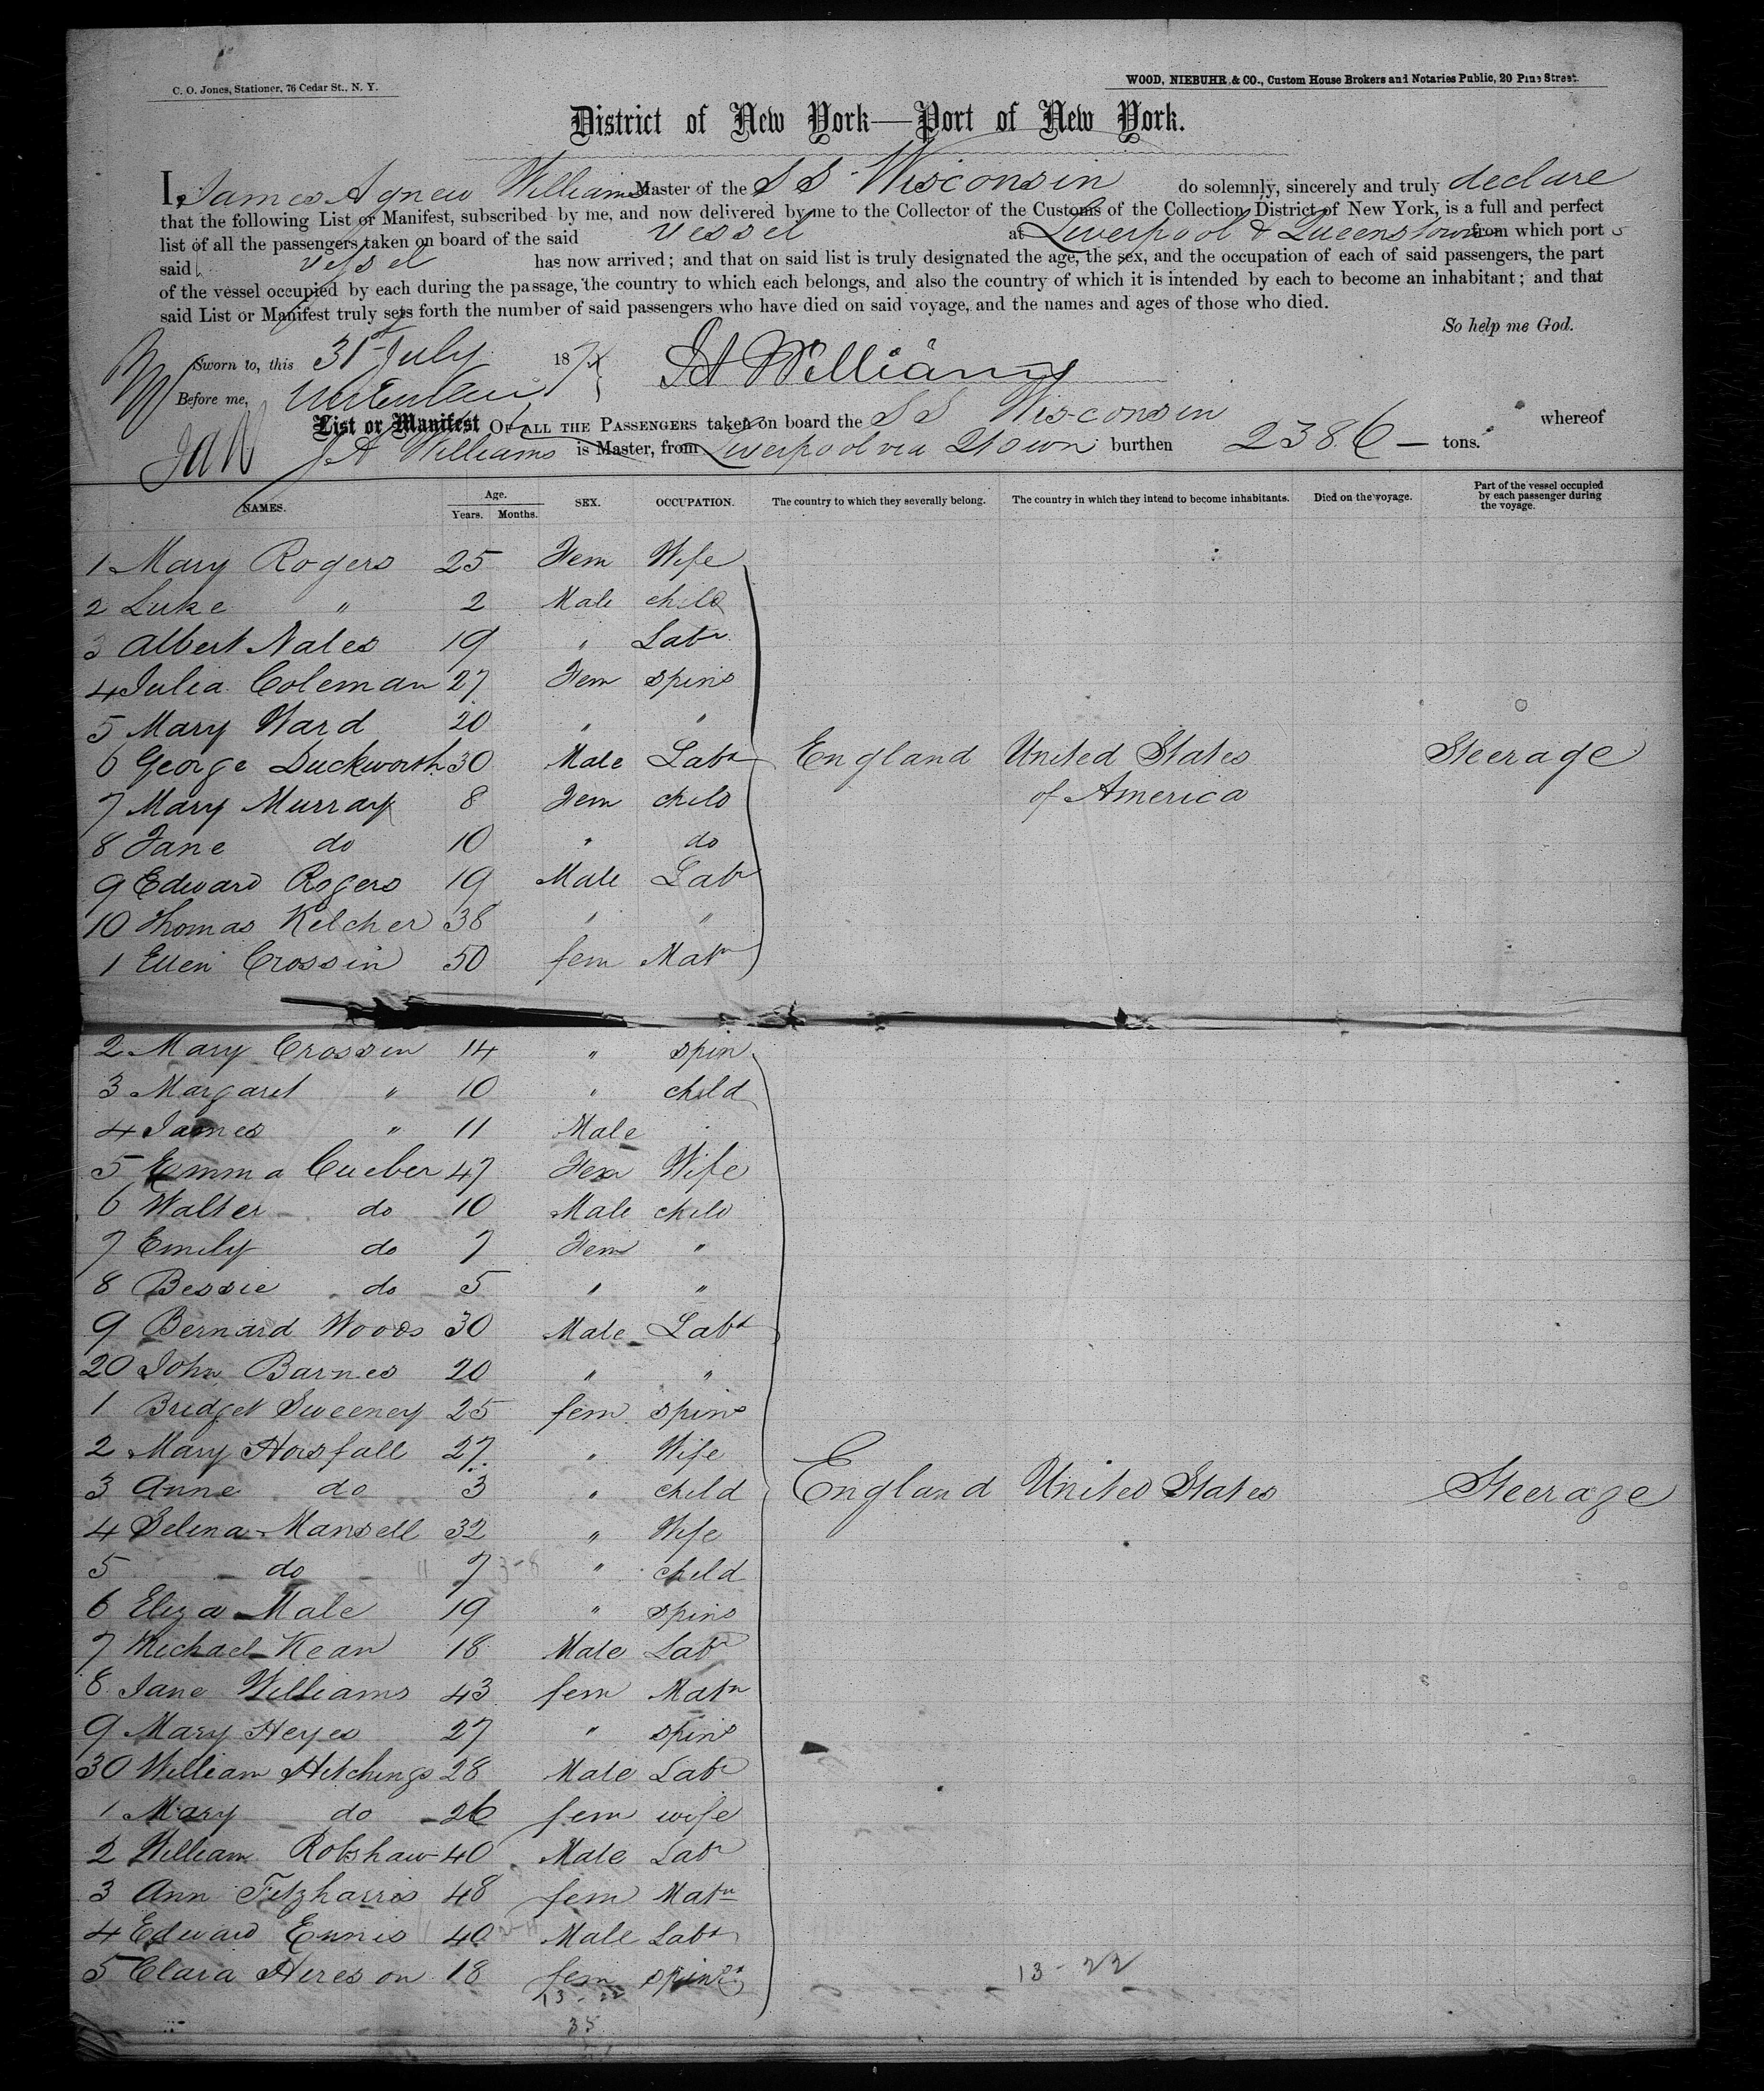 C. O. Jones, Stationer, 76 Cedar St., N. Y.
WOOD, NIEBUHR & CO., Custom House Brokers and Notaries Public, 20 Pine Street.
District of New York—Port of New York.
I, James Agnew Williams Master of the S S Wisconsin do solemnly, sincerely and truly declare
that the following List or Manifest, subscribed by me, and now delivered by me to the Collector of the Customs of the Collection District of New York, is a full and perfect
list of all the passengers taken on board of the said vessel at Liverpool & Queenstown from which port s
said vessel has now arrived; and that on said list is truly designated the age, the sex, and the occupation of each of said passengers, the part
of the vessel occupied by each during the passage, the country to which each belongs, and also the country of which it is intended by each to become an inhabitant; and that
said List or Manifest truly sets forth the number of said passengers who have died on said voyage, and the names and ages of those who died.
So help me God.
Sworn to, this 31st July 187
J A Williams
Before me,
List or Manifest OF ALL THE PASSENGERS taken on board the S S Wisconsin whereof
JAW
J A Williams is Master, from Liverpool via Qtown burthen 2386 — tons.
NAMES. Age. Years. Months. SEX. OCCUPATION. The country to which they severally belong. The country in which they intend to become inhabitants. Died on the voyage. Part of the vessel occupied by each passenger during the voyage.
1 Mary Rogers 25 Fem Wife
2 Luke " 2 Male child
3 Albert Nales 19 " Labr
4 Julia Coleman 27 Fem spins
5 Mary Ward 20 " "
6 George Duckworth 30 Male Labr England United States Steerage
7 Mary Murray 8 Fem child of America
8 Jane do 10 " do
9 Edward Rogers 19 Male Labr
10 Thomas Kelcher 38 " "
1 Ellen Crossin 50 fem Matn
2 Mary Crossin 14 " spin
3 Margaret " 10 " child
4 James " 11 Male
5 Emma Cueber 47 Fem Wife
6 Walter do 10 Male child
7 Emily do 7 Fem "
8 Bessie do 5 " "
9 Bernard Woods 30 Male Labr
20 John Barnes 20 " "
1 Bridget Sweeney 25 fem spins
2 Mary Horsfall 27 " Wife
3 Anne do 3 " child England United States Steerage
4 Selina Mansell 32 " Wife
5 do 7 3-8 " child
6 Eliza Male 19 " spins
7 Michael Kean 18 Male Labr
8 Jane Williams 43 fem Matn
9 Mary Heyes 27 " spins
30 William Hitchings 28 Male Labr
1 Mary do 26 fem wife
2 William Robshaw 40 Male Labr
3 Ann Fitzharris 48 fem Matn
4 Edward Ennis 40 Male Labr
5 Clara Hereson 18 fem spins 13-22
13-22
35